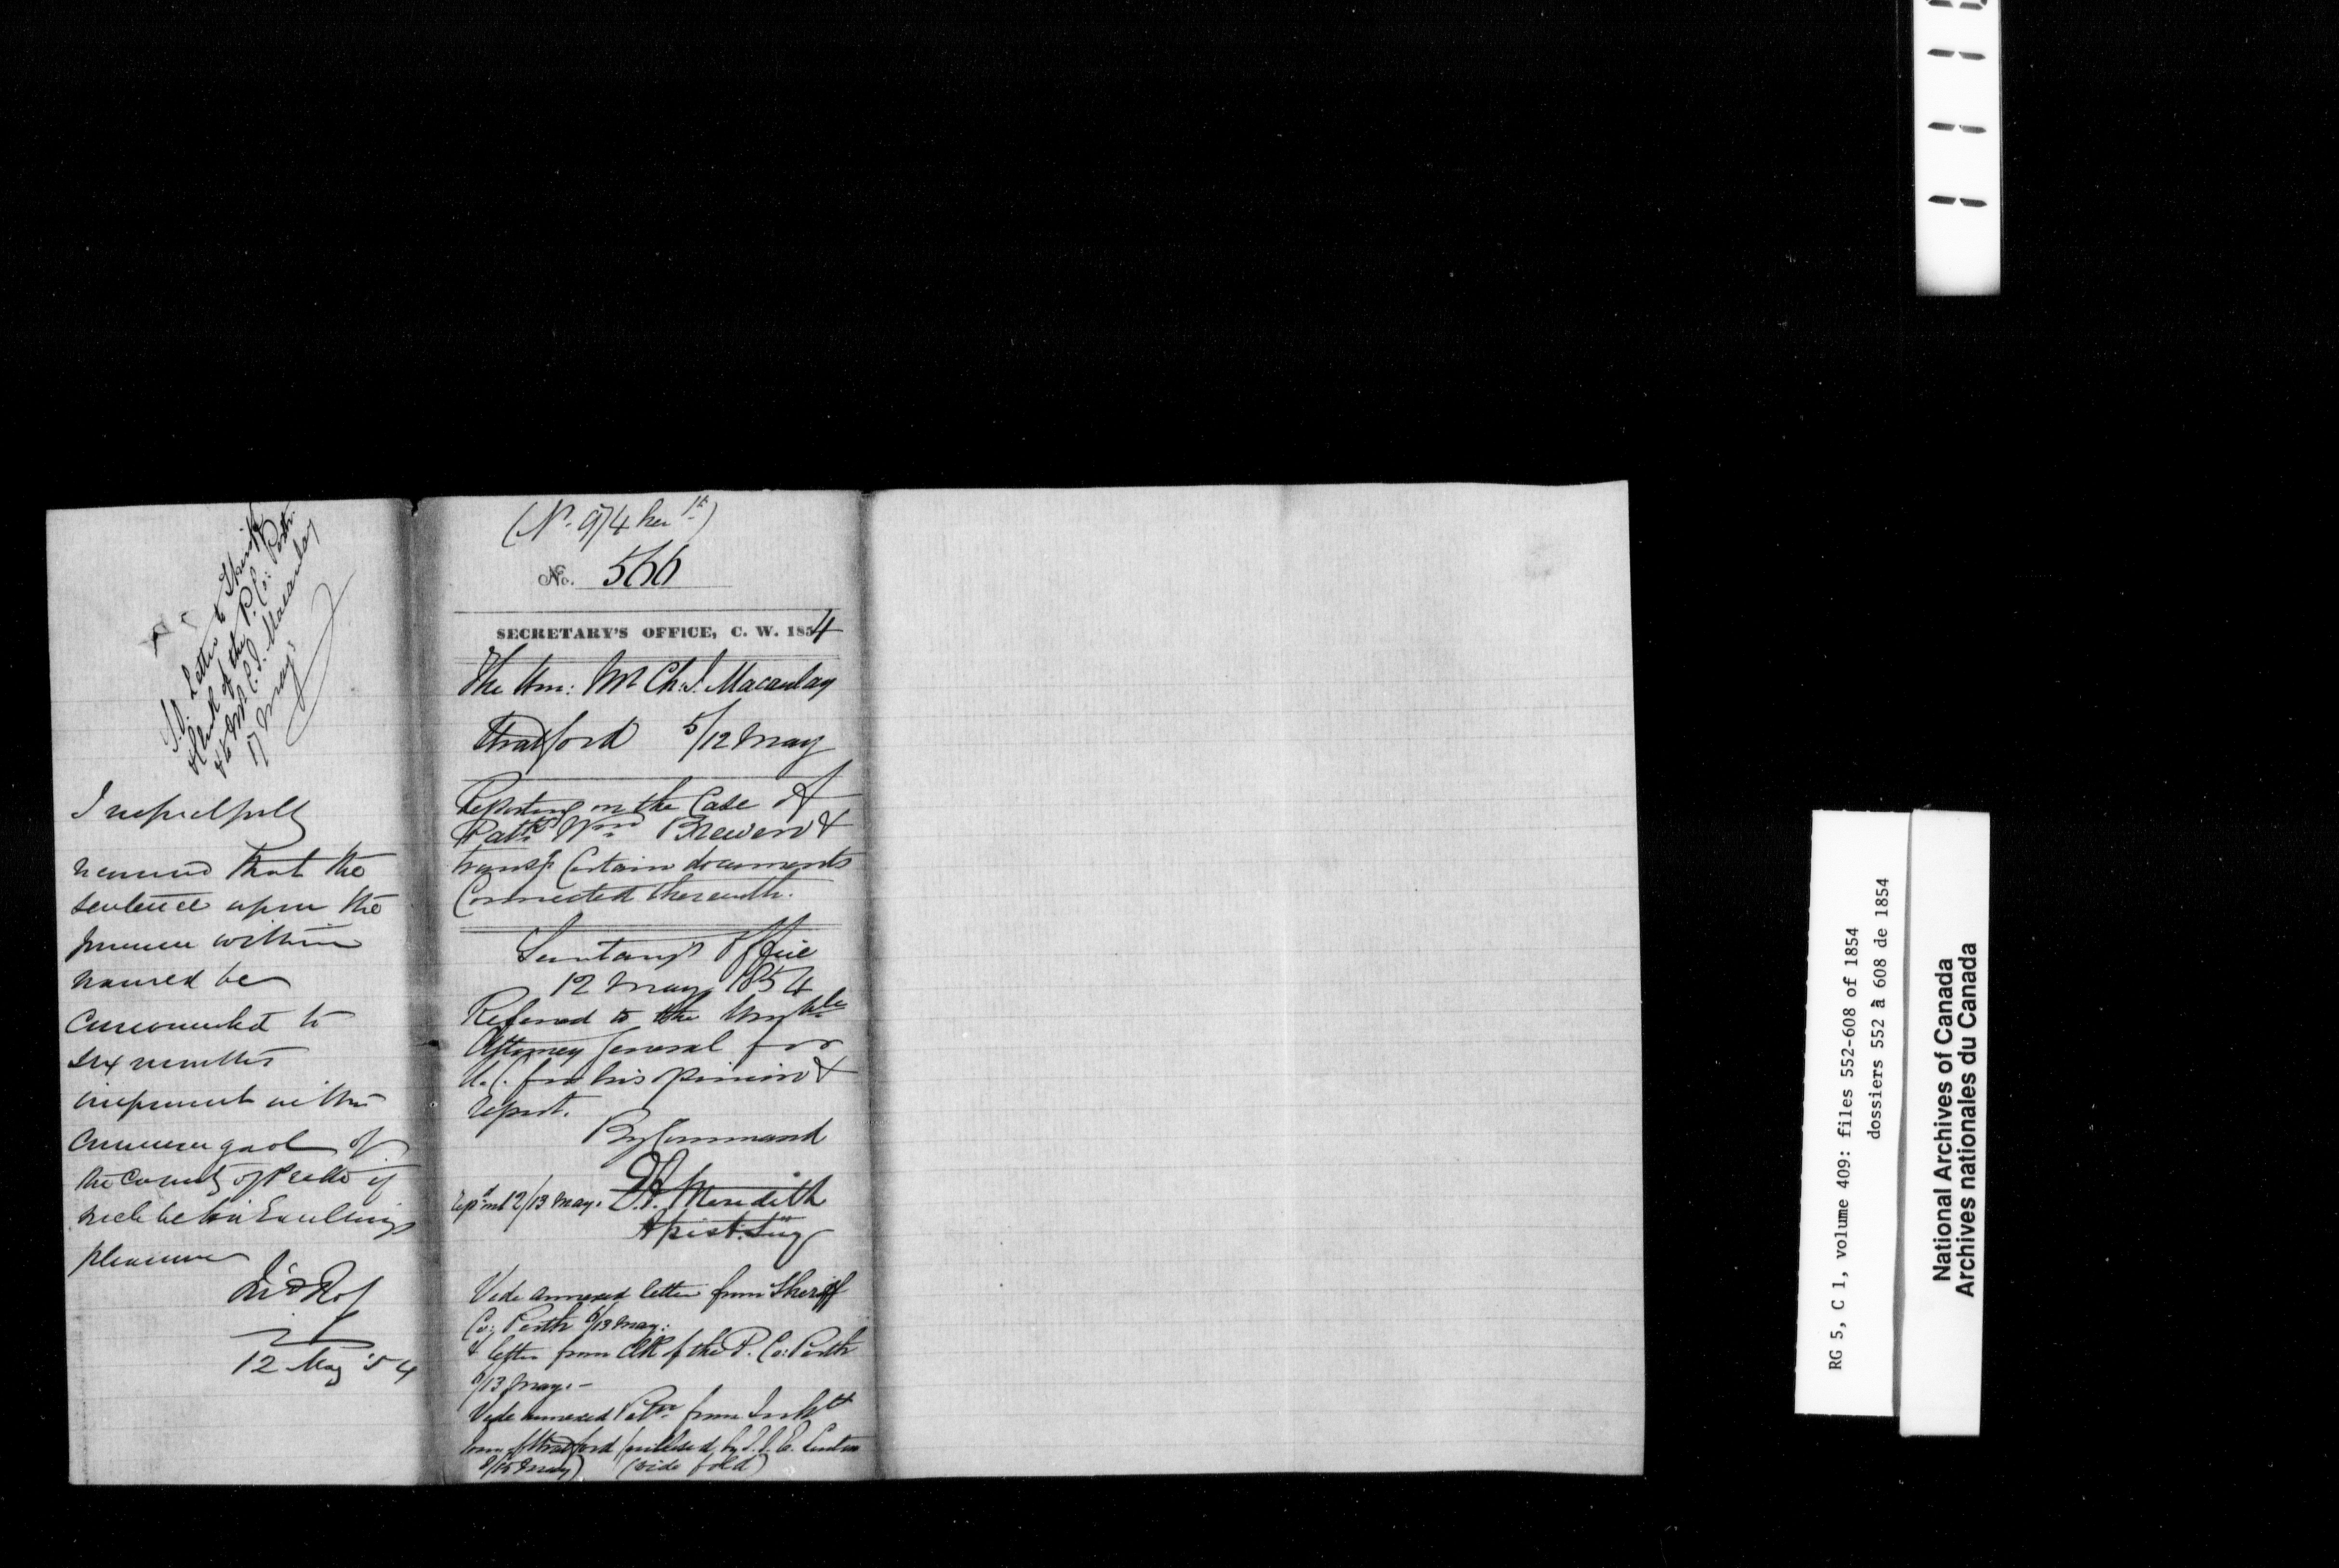 S.O. Letter to Sheriff
& Clerk of the P. Co: Perth
& to Mr C.J. Macaulay
17 May:
I respectfully
recommend that the
sentence upon the
prisoner within
named be
commuted to
six months
imprisonment in the
common gaol of
the County of Perth if
such be his Excellency's
pleasure
12 May '54
No. 566
SECRETARY'S OFFICE, C. W. 1854
The Hon: Mr Ch: J. Macaulay
Stratford 5/12 May
Reporting on the Case of
Wm Brewer &
transg. Certain documents
Connected therewith.
Secretary's Office
12 May 1854
Referred to the Honble
Attorney General for
U.C. for his opinion &
report.
By Command
Rep'd 12/13 May. E.A. Meredith
Assist. Secy
Vide annexed letter from Sheriff
Co: Perth 6/13 May:
& letter from Clk of the P. Co: Perth
/13 May. -
Vide annexed Petn from Inhbts
Town of Stratford (enclosed by J.J.E. Linton
8/15 May) (vide fold)
RG 5, C 1, volume 409: files 552-608 of 1854
dossiers 552 à 608 de 1854
National Archives of Canada
Archives nationales du Canada